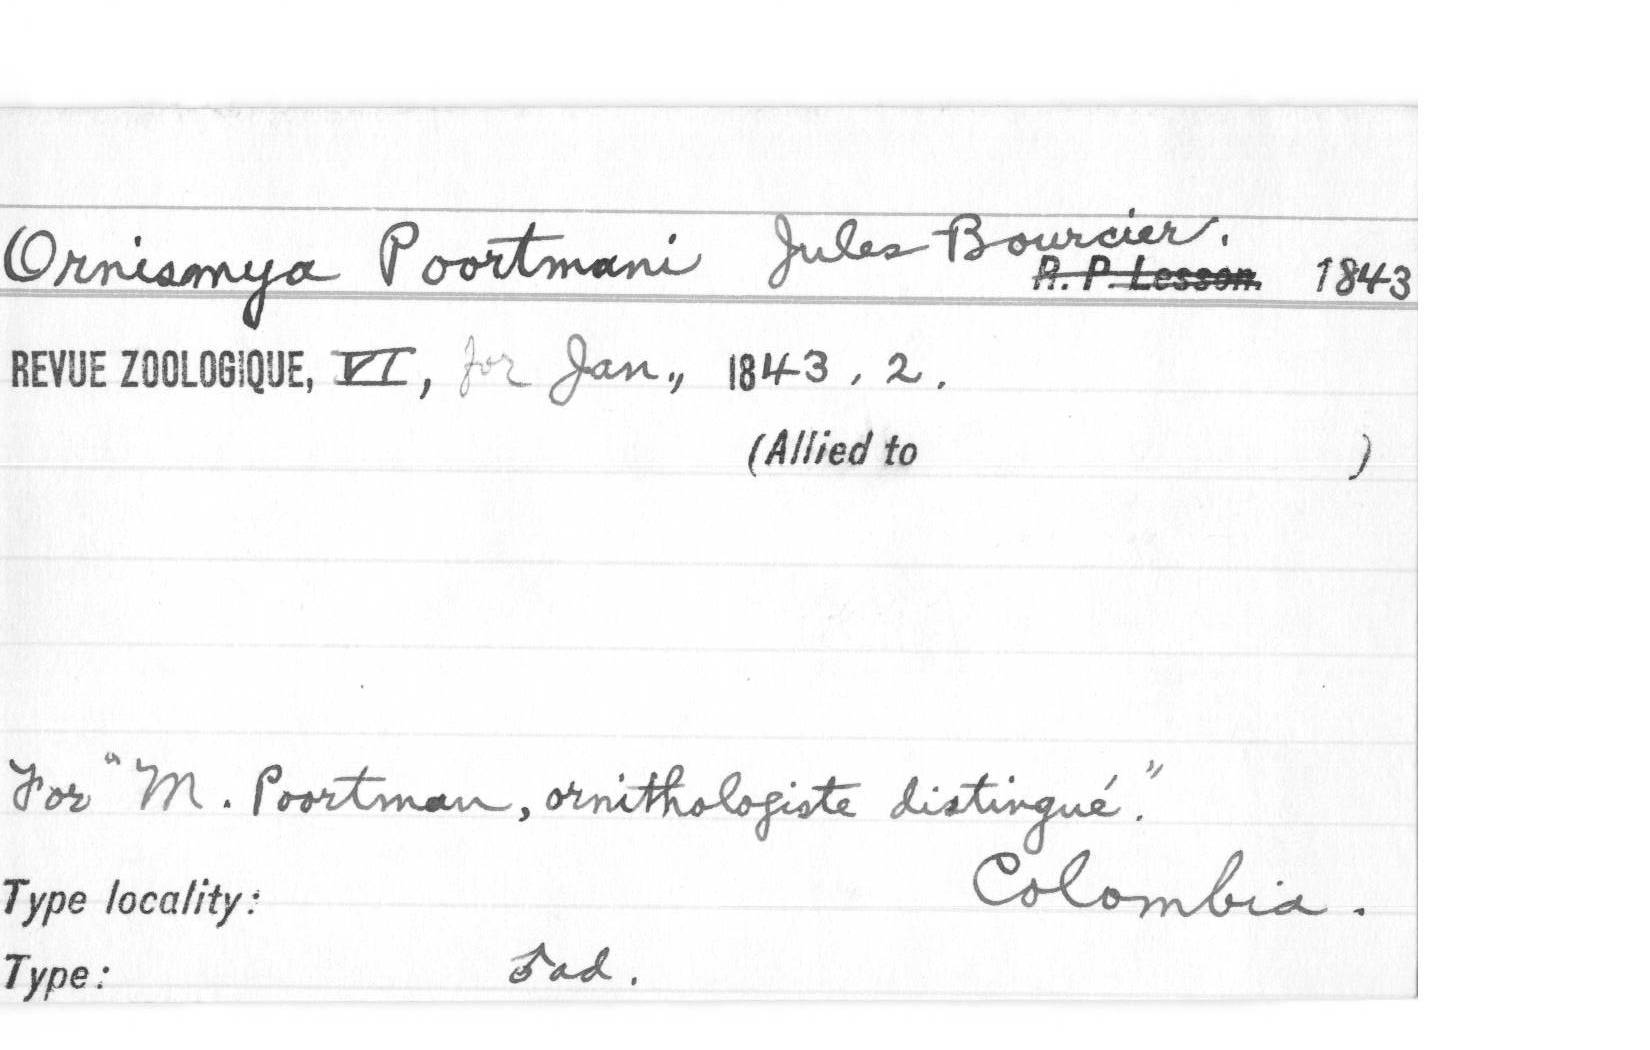 Ornismya Poortmani Jules Bourcier.
R. P. Lesson. 1843
REVUE ZOOLOGIQUE, VI, for Jan., 1843, 2.
(Allied to )
For "M. Poortman, ornithologiste distingué."
Type locality: Colombia.
Type: ♂ad.